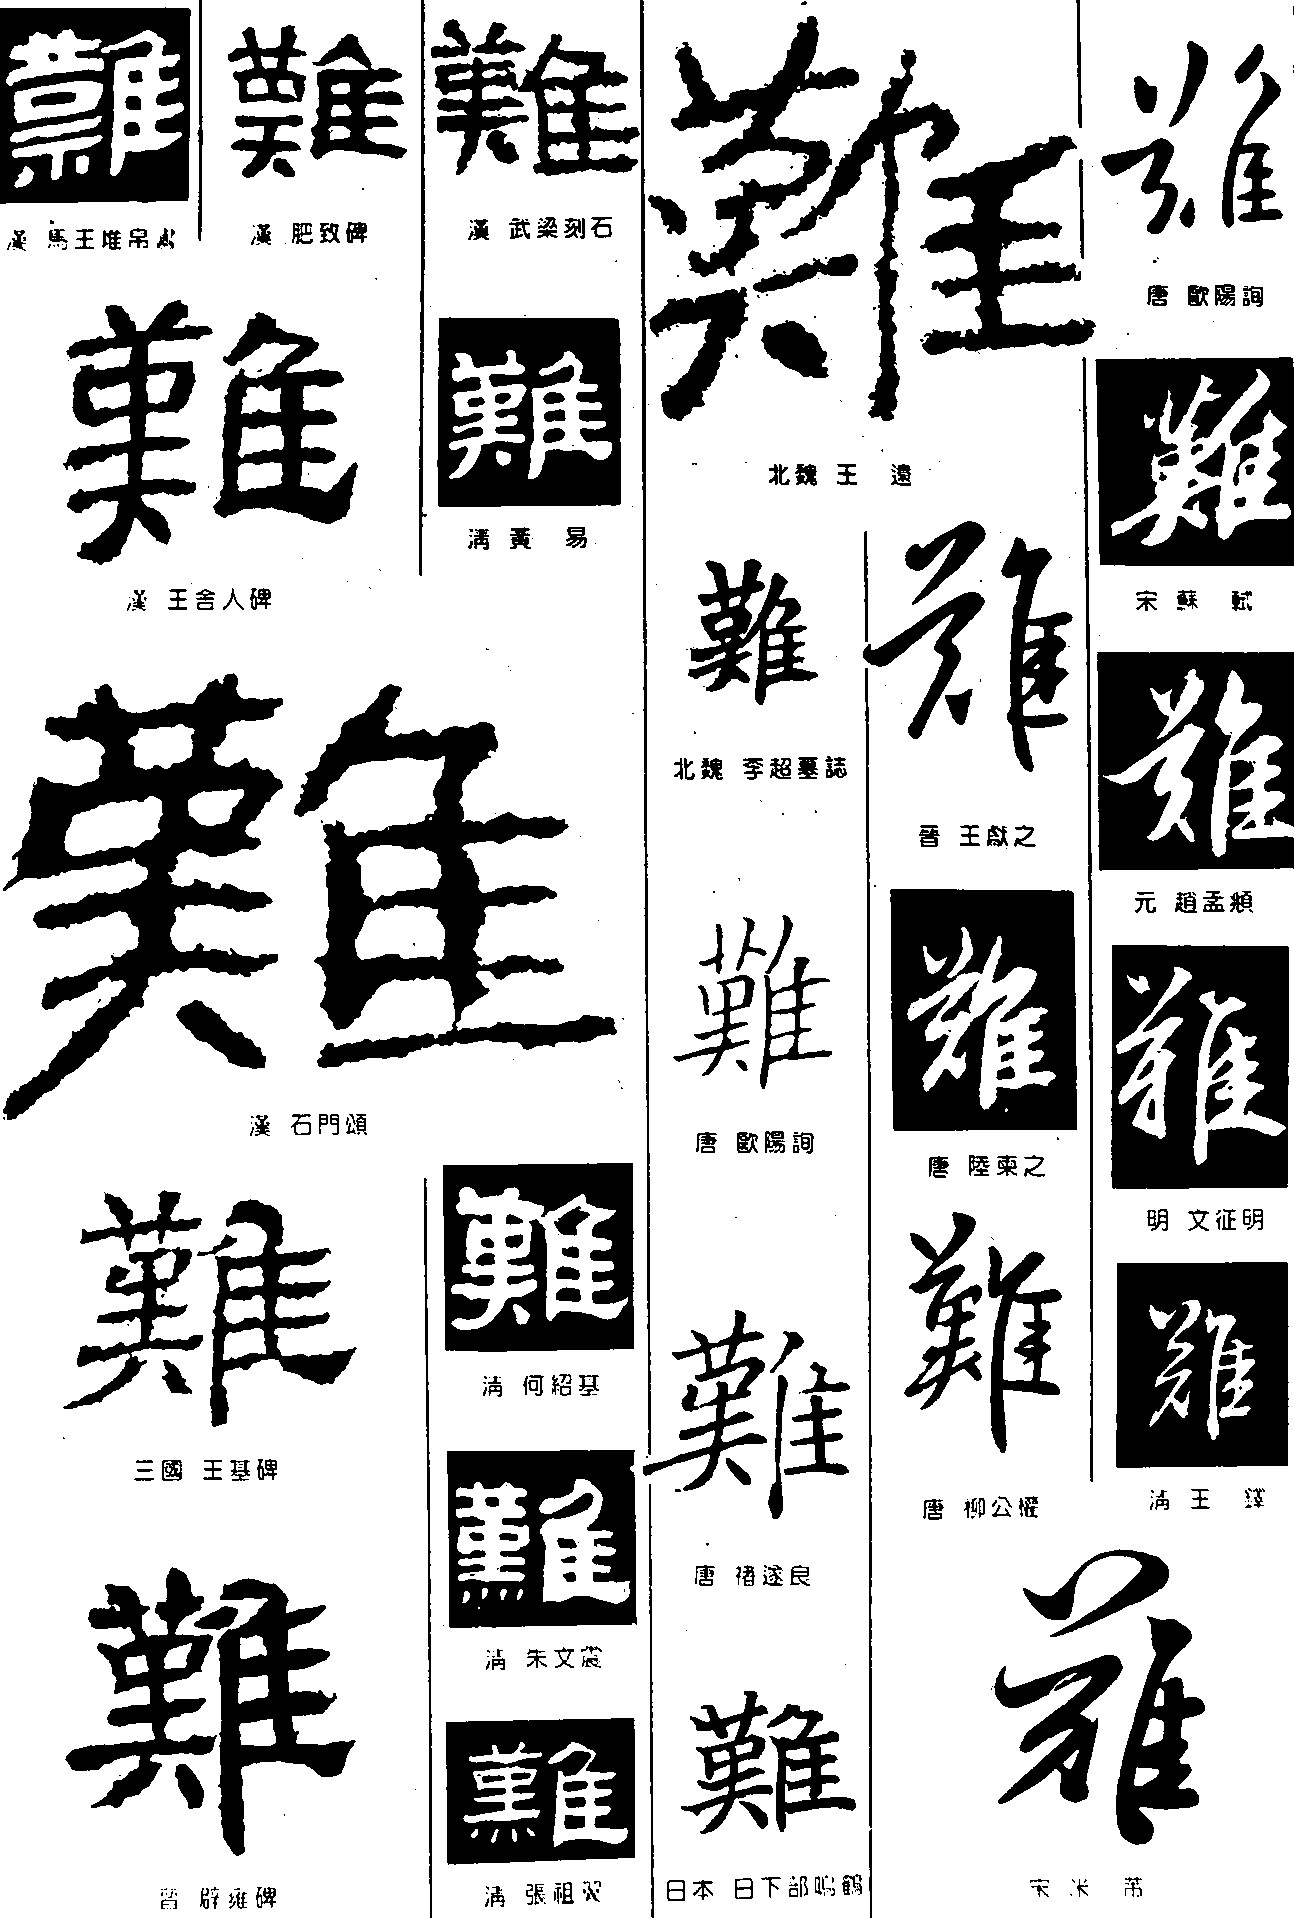 難 難 難 難 難
漢 馬王堆帛書
漢 肥致碑
漢 武梁刻石
唐 歐陽詢
難 難
北魏 王 遠
清 黃 易
漢 王舍人碑
難
宋 蘇 軾
難 難
難
北魏 李超墓誌
晉 王獻之
難
元 趙孟頫
難
難
難
唐 歐陽詢
漢 石門頌
唐 陸柬之
難
明 文征明
難
難
難
清 何紹基
三國 王基碑
難
唐 柳公權
難
清 王 鐸
難
唐 褚遂良
清 朱文震
難
難
難
難
日本 日下部鳴鶴
宋 米 芾
清 張祖翼
晉 辟雍碑